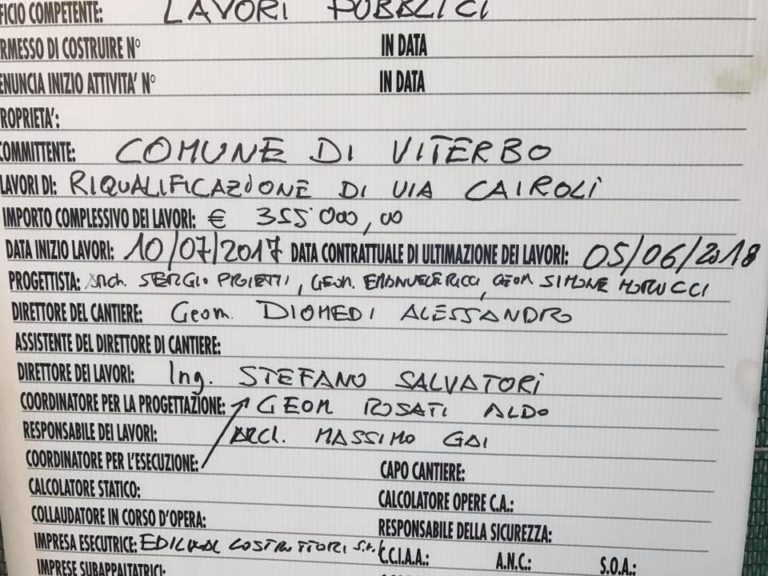 FICIO COMPETENTE: LAVORI PUBBLICI
RMESSO DI COSTRUIRE N° IN DATA
ENUNCIA INIZIO ATTIVITA' N° IN DATA
ROPRIETA':
COMMITTENTE: COMUNE DI VITERBO
LAVORI DI: RIQUALIFICAZIONE DI VIA CAIROLI
IMPORTO COMPLESSIVO DEI LAVORI: € 355 000,00
DATA INIZIO LAVORI: 10/07/2017 DATA CONTRATTUALE DI ULTIMAZIONE DEI LAVORI: 05/06/2018
PROGETTISTA: Arch. SERGIO PROIETTI, GEOM. EMANUELE RICCI, GEOM SIMONE MORUCCI
DIRETTORE DEL CANTIERE: Geom. DIOMEDI ALESSANDRO
ASSISTENTE DEL DIRETTORE DI CANTIERE:
DIRETTORE DEI LAVORI: Ing. STEFANO SALVATORI
COORDINATORE PER LA PROGETTAZIONE: GEOM ROSATI ALDO
RESPONSABILE DEI LAVORI: ARCH. MASSIMO GAI
COORDINATORE PER L'ESECUZIONE:
CAPO CANTIERE:
CALCOLATORE STATICO:
CALCOLATORE OPERE C.A.:
COLLAUDATORE IN CORSO D'OPERA:
RESPONSABILE DELLA SICUREZZA:
IMPRESA ESECUTRICE: COSTRUTTORI C.C.I.A.A.: A.N.C.: S.O.A.:
IMPRESE SUBAPPALTATRICI: